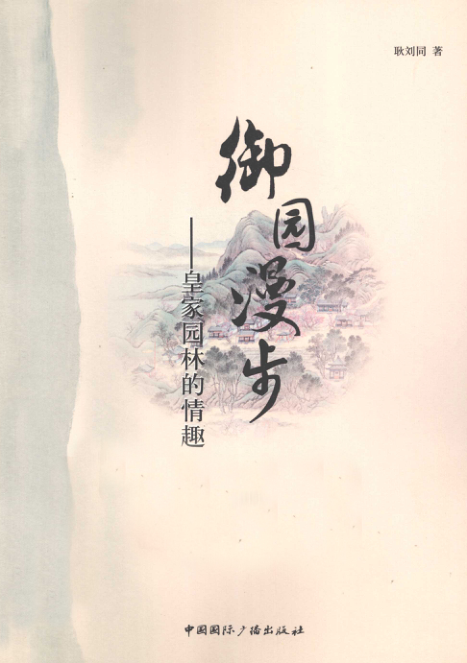 耿刘同 著
御园漫步
——皇家园林的情趣
中国国际广播出版社